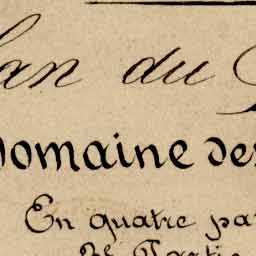 lan du
Domaine des
En quatre par
3e Partie